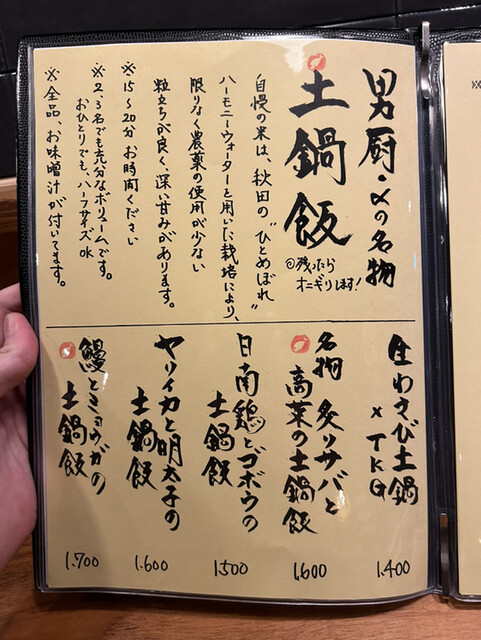 男厨・〆の名物
土鍋飯
◎残ったら
オニギリします!
自慢の米は、秋田の"ひとめぼれ"
ハーモニーウォーターを用いた栽培により、
限りなく農薬の使用が少ない
粒立ちが良く、深い甘みがあります。
※15〜20分お時間ください
※2、3名でも充分なボリュームです。
おひとりでも、ハーフサイズOK
※全品、お味噌汁が付いてます。
生わさび土鍋
×TKG
1.400
名物 炙りサバと
高菜の土鍋飯
1.600
日南鶏とゴボウの
土鍋飯
1.500
ヤリイカと明太子の
土鍋飯
1.600
鰻とミョウガの
土鍋飯
1.700
※